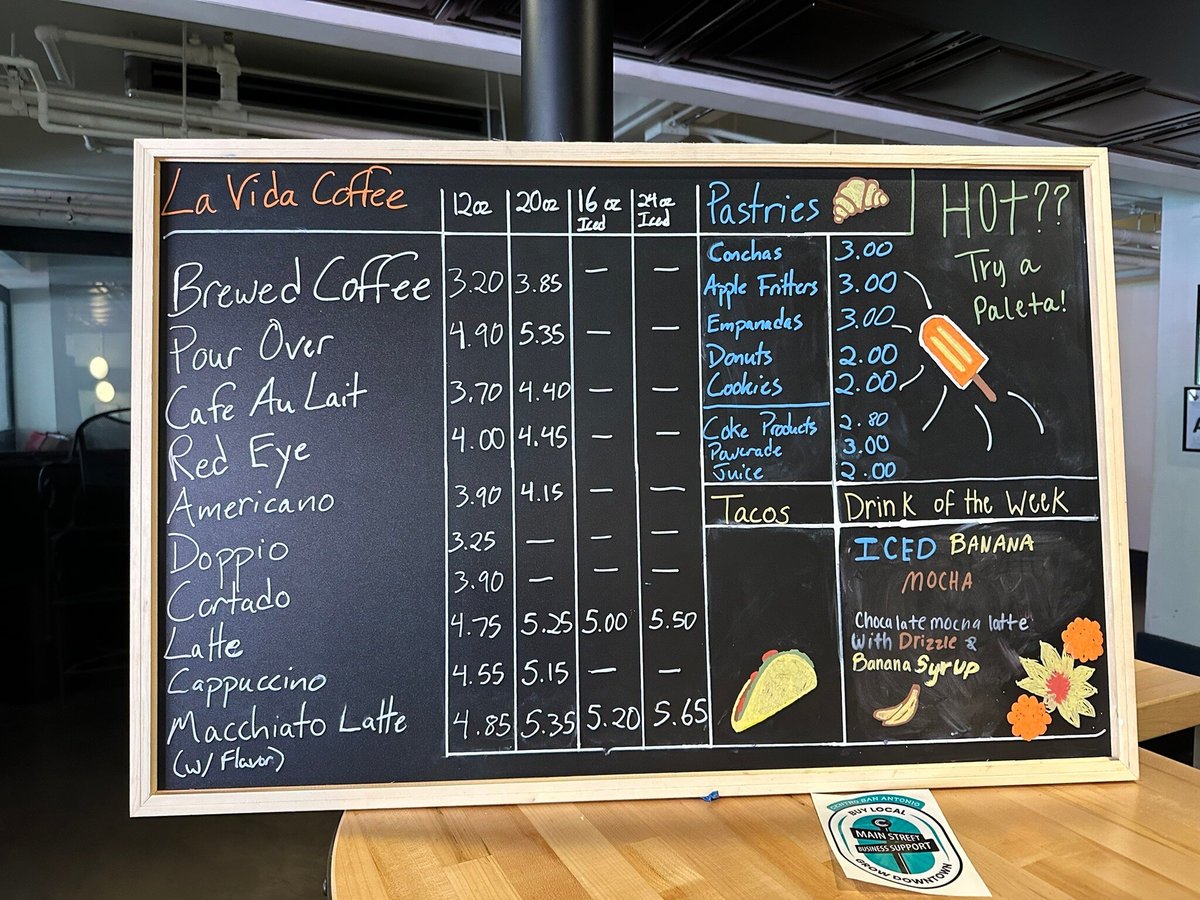 La Vida Coffee 12oz 20oz 16 oz Iced 24oz Iced
Brewed Coffee 3.20 3.85 — —
Pour Over 4.90 5.35 — —
Cafe Au Lait 3.70 4.40 — —
Red Eye 4.00 4.45 — —
Americano 3.90 4.15 — —
Doppio 3.25 — — —
Cortado 3.90 — — —
Latte 4.75 5.25 5.00 5.50
Cappuccino 4.55 5.15 — —
Macchiato Latte 4.85 5.35 5.20 5.65
(w/ Flavor)
Pastries
Conchas 3.00
Apple Fritters 3.00
Empanadas 3.00
Donuts 2.00
Cookies 2.00
Coke Products 2.80
Powerade 3.00
Juice 2.00
HOT??
Try a
Paleta!
Tacos
Drink of the Week
ICED BANANA
MOCHA
Chocolate mocha latte
with Drizzle &
Banana Syrup
CENTRO SAN ANTONIO
BUY LOCAL
C
MAIN STREET
BUSINESS SUPPORT
GROW DOWNTOWN